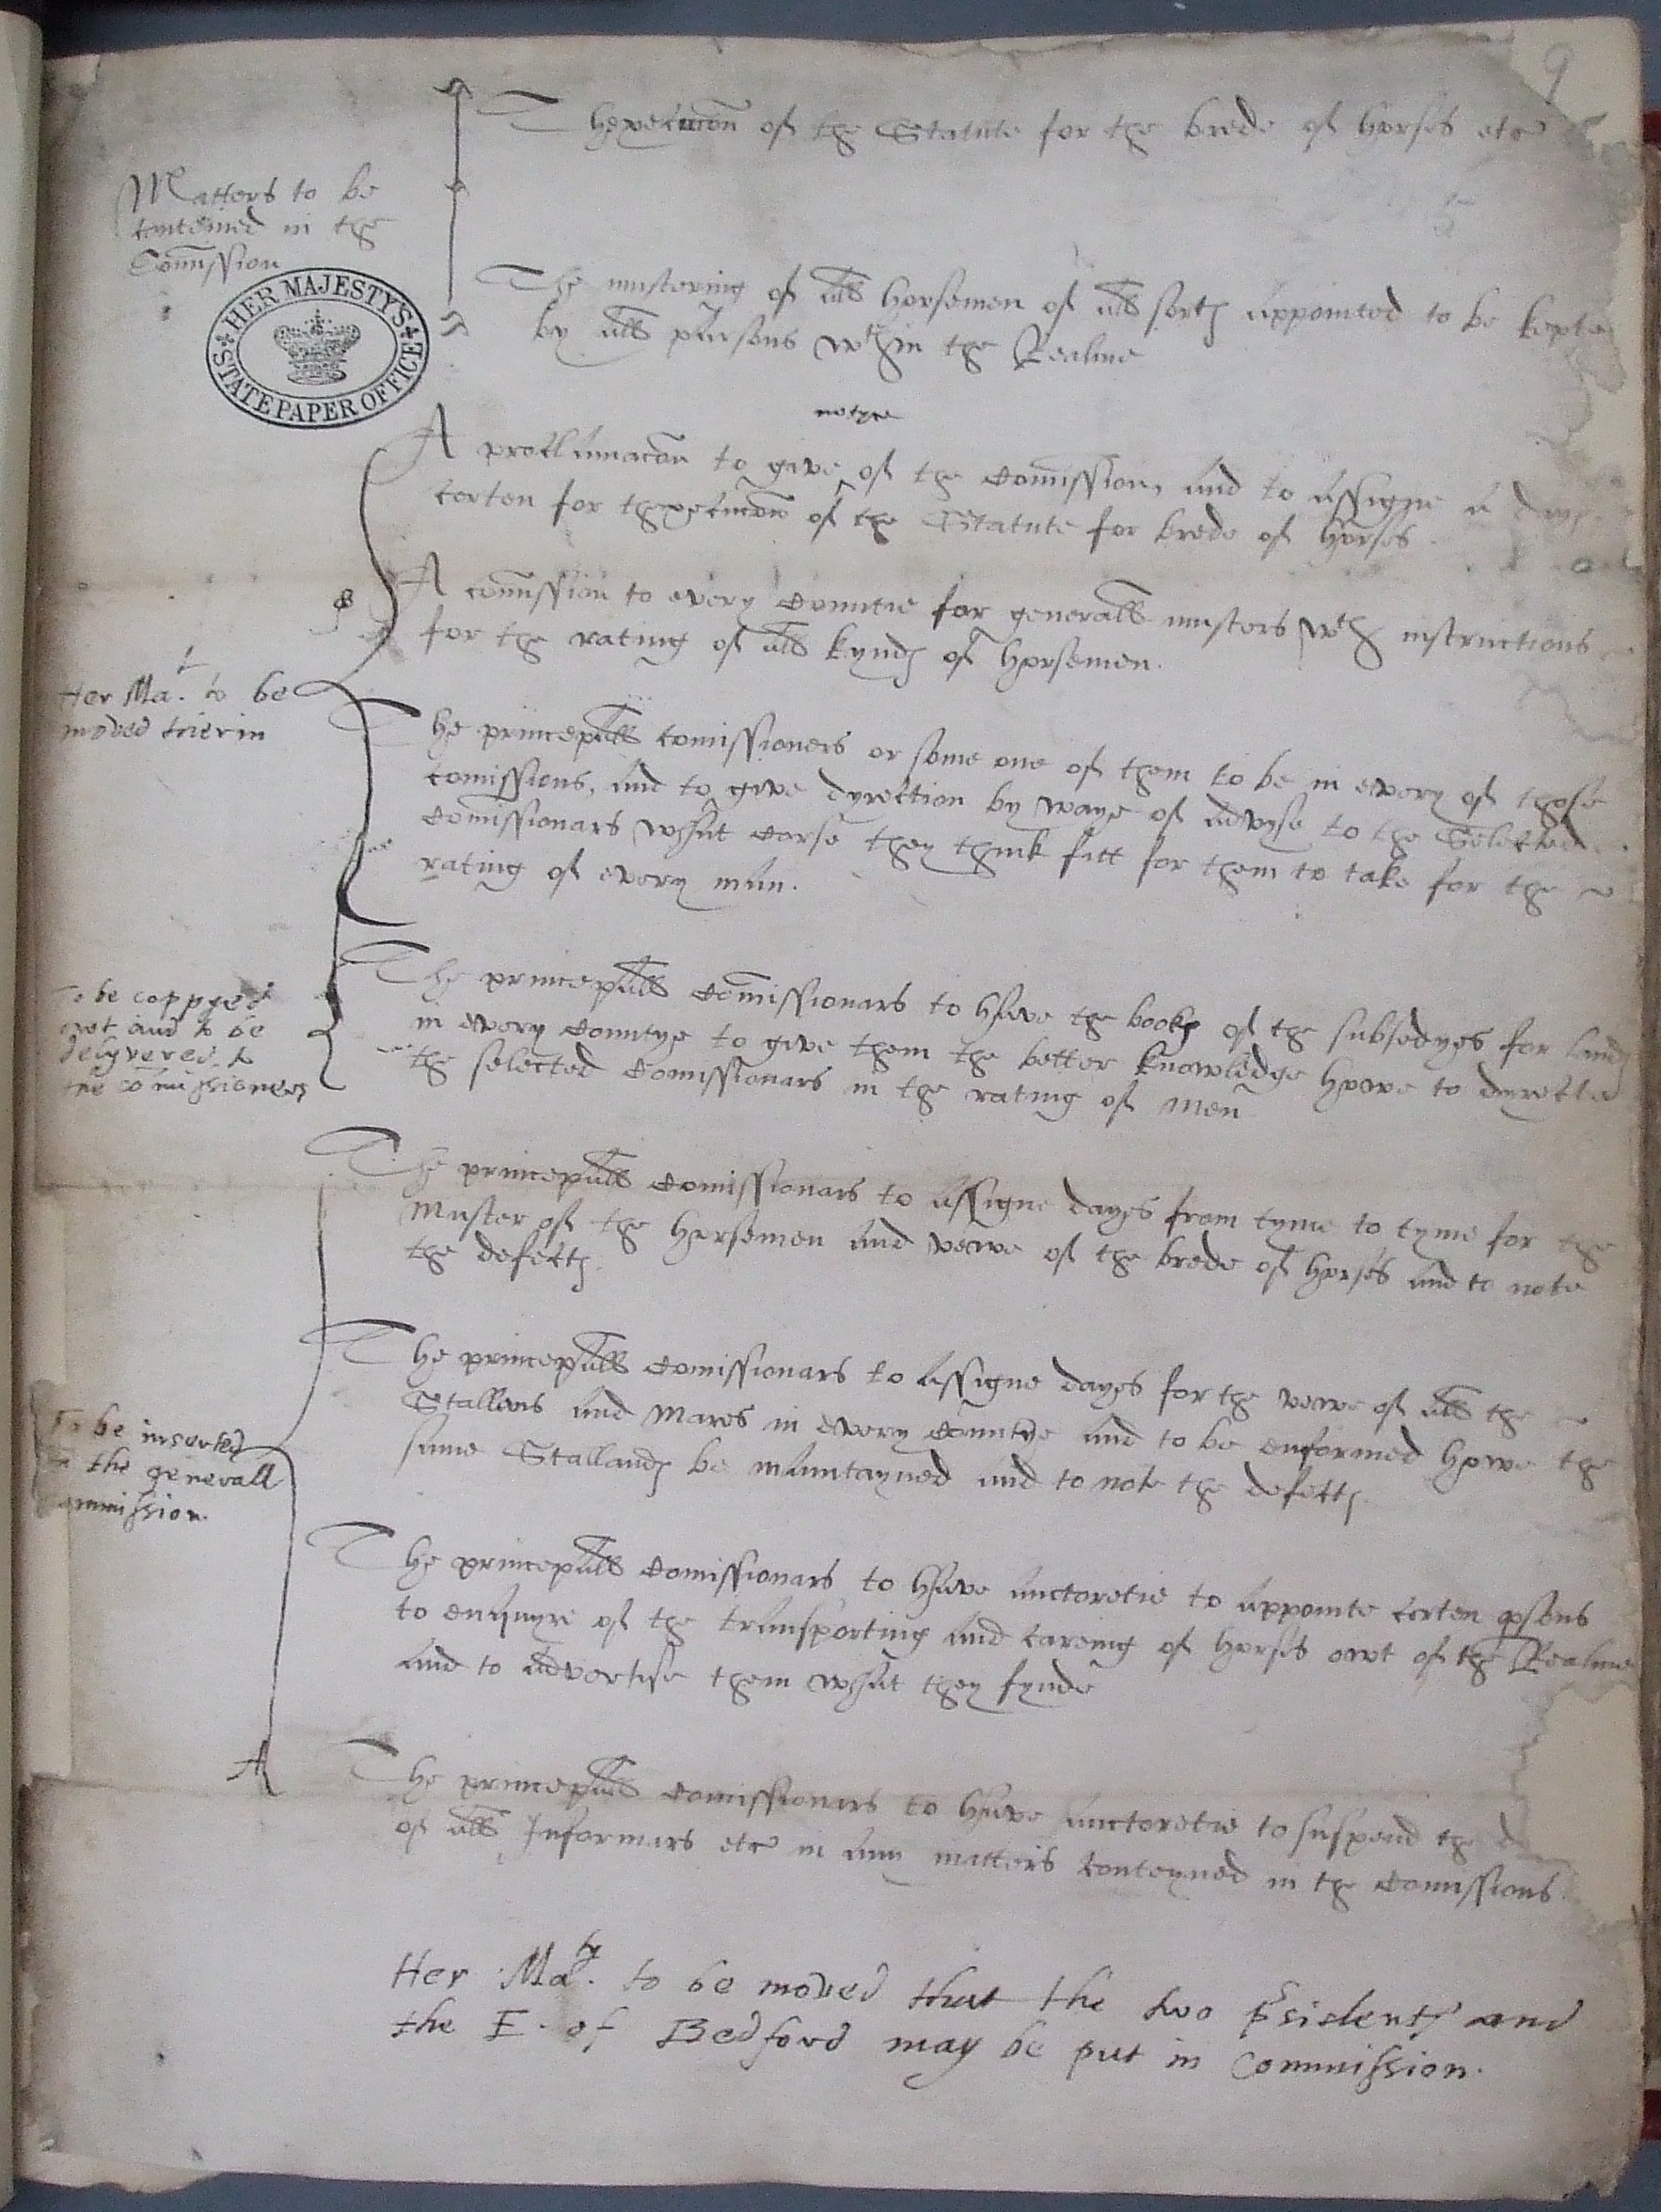 9
Thexecucon of the Statute for the brede of horses etc
Matters to be
conteined in the
Comission
HER MAJESTY'S
STATE PAPER OFFICE
The mustering of all horsemen of all sortes appointed to be kepte
by all parsons wthin the Realme
notyce
A proclamacon to give ^ of the Comission, and to assigne a daye
certen for thexecucon of the Statute for brede of horses.
A comission to every Countie for generall musters wth instructions
for the rating of all kyndes of horsemen.
Her Ma.t to be
moved herin
The princepall comissioners or some one of them to be in every of those
comissions, and to give dyrection by waye of advyse to the Selected
Comissionars what Corse they think fitt for them to take for the
rating of every man.
To be coppyed
owt and to be
delyvered to
the comissioners
The princepall Comissionars to have the bookes of the subsedyes for landes
in every Countye to give them the better knowledge howe to dyrecte
the selected Comissionars in the rating of men
The princepall Comissionars to assigne dayes from tyme to tyme for the
Muster of the horsemen and vewe of the brede of horses and to note
the defectes.
The princepall Comissionars to assigne dayes for the vewe of all the
Stallans and Mares in every Countye and to be enformed howe the
same Stallandes be maintayned and to note the defectes.
To be inserted
in the generall
commission.
The princepall Comissionars to have auctoretie to appointe certen psons
to enquyre of the transporting and careing of horses owt of the Realme
and to advertise them what they fynde
The princepall Comissionars to have auctoretie to suspend the
of all Informars etc in any matters conteyned in the Comissions
Her Ma.ty to be moved that the two psidents and
the E. of Bedford may be put in Commission.